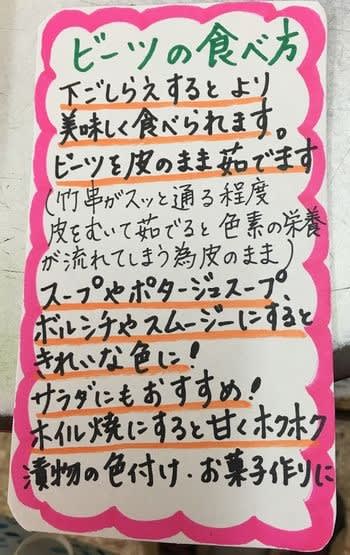 ビーツの食べ方
下ごしらえするとより
美味しく食べられます。
ビーツを皮のまま茹でます
(竹串がスッと通る程度
皮をむいて茹でると色素の栄養
が流れてしまう為皮のまま)
スープやポタージュスープ、
ボルシチやスムージーにすると
きれいな色に!
サラダにもおすすめ!
ホイル焼にすると甘くホクホク
漬物の色付け・お菓子作りに